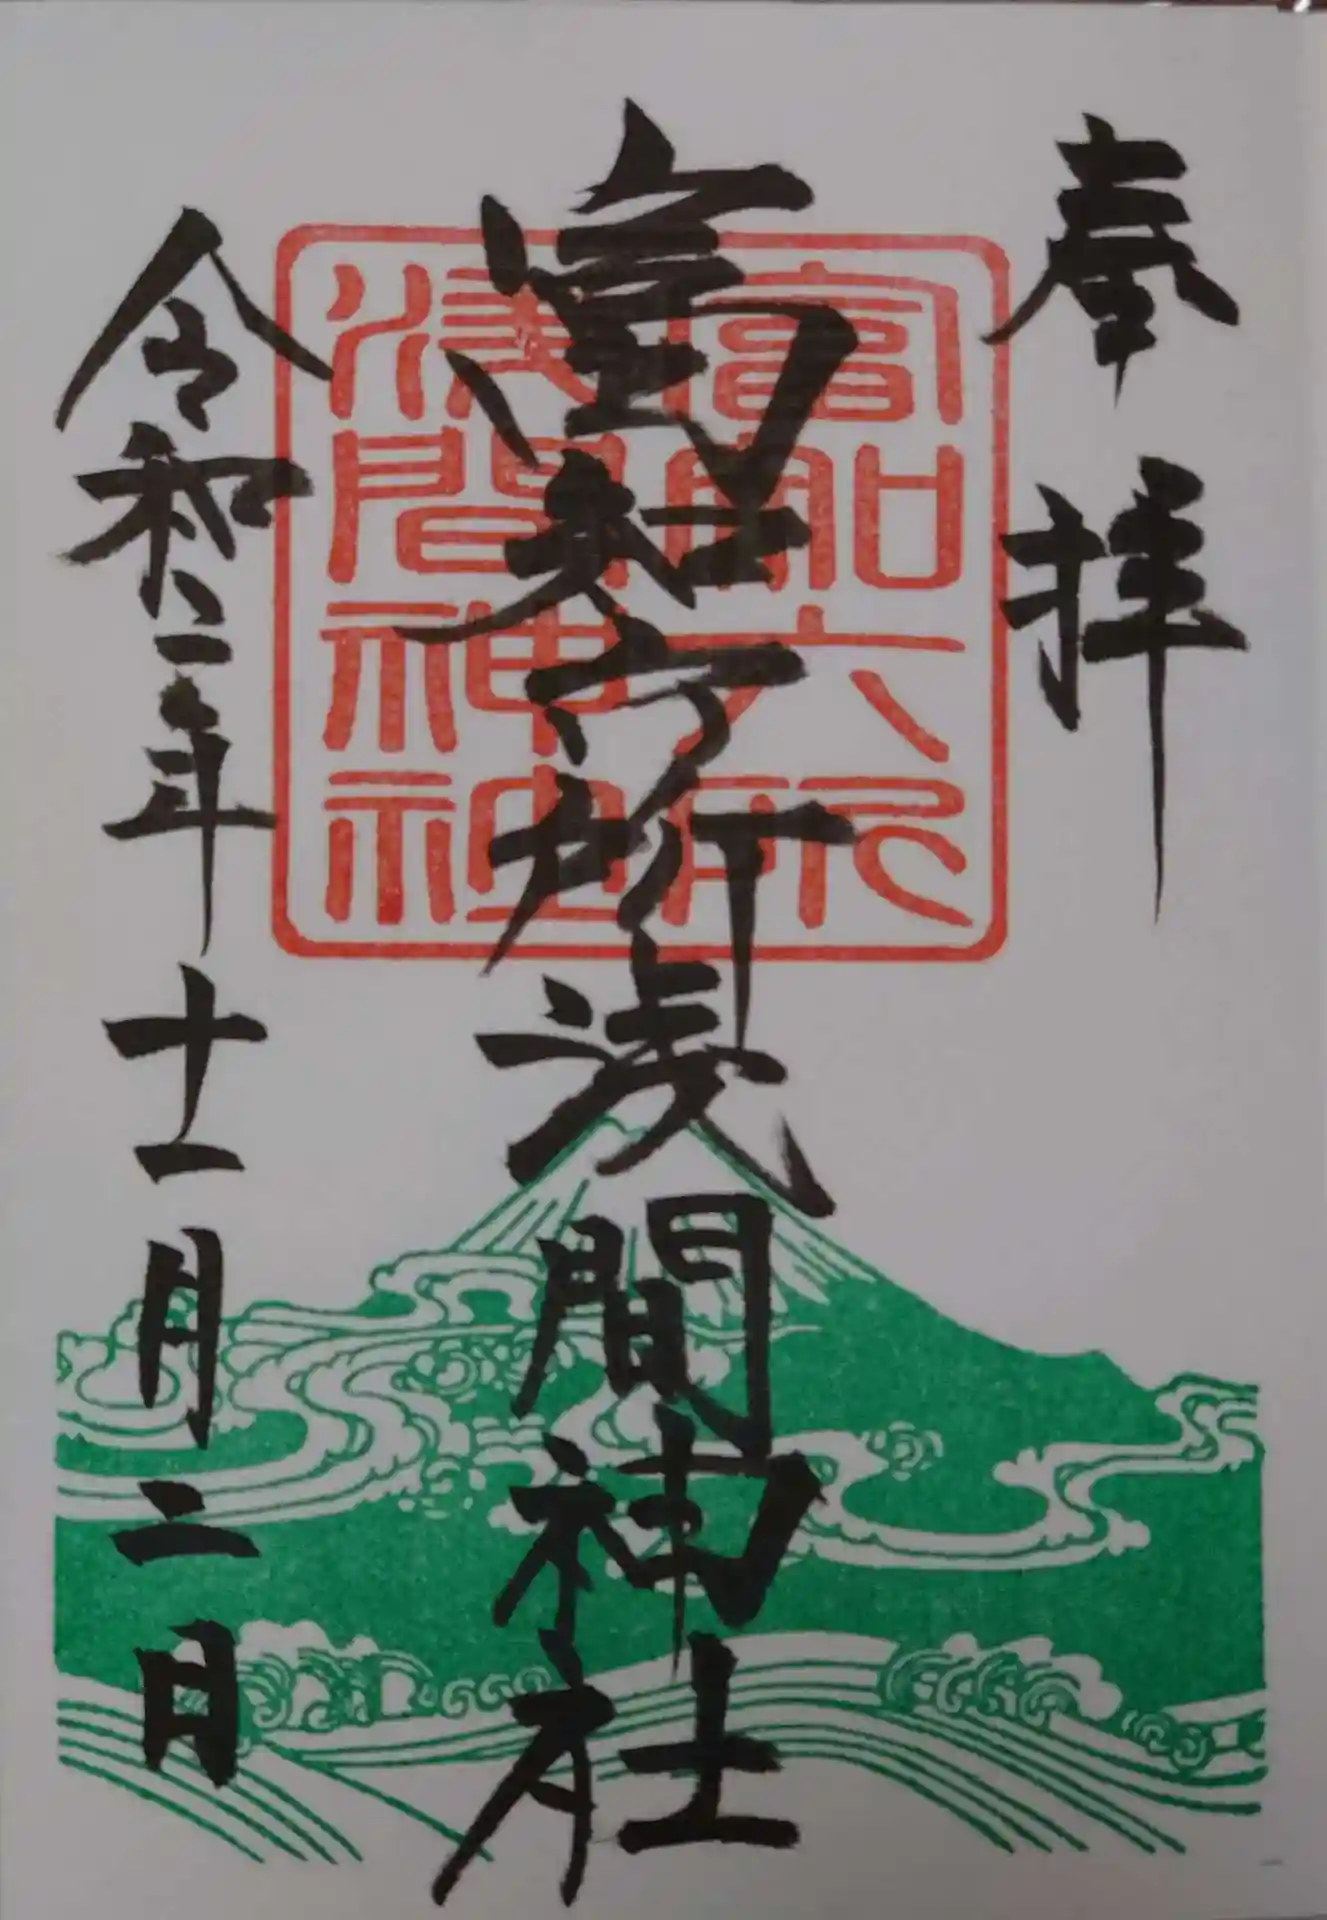 奉拝
富知六所浅間神社
令和二年十一月二日
富知六所
淺間神社